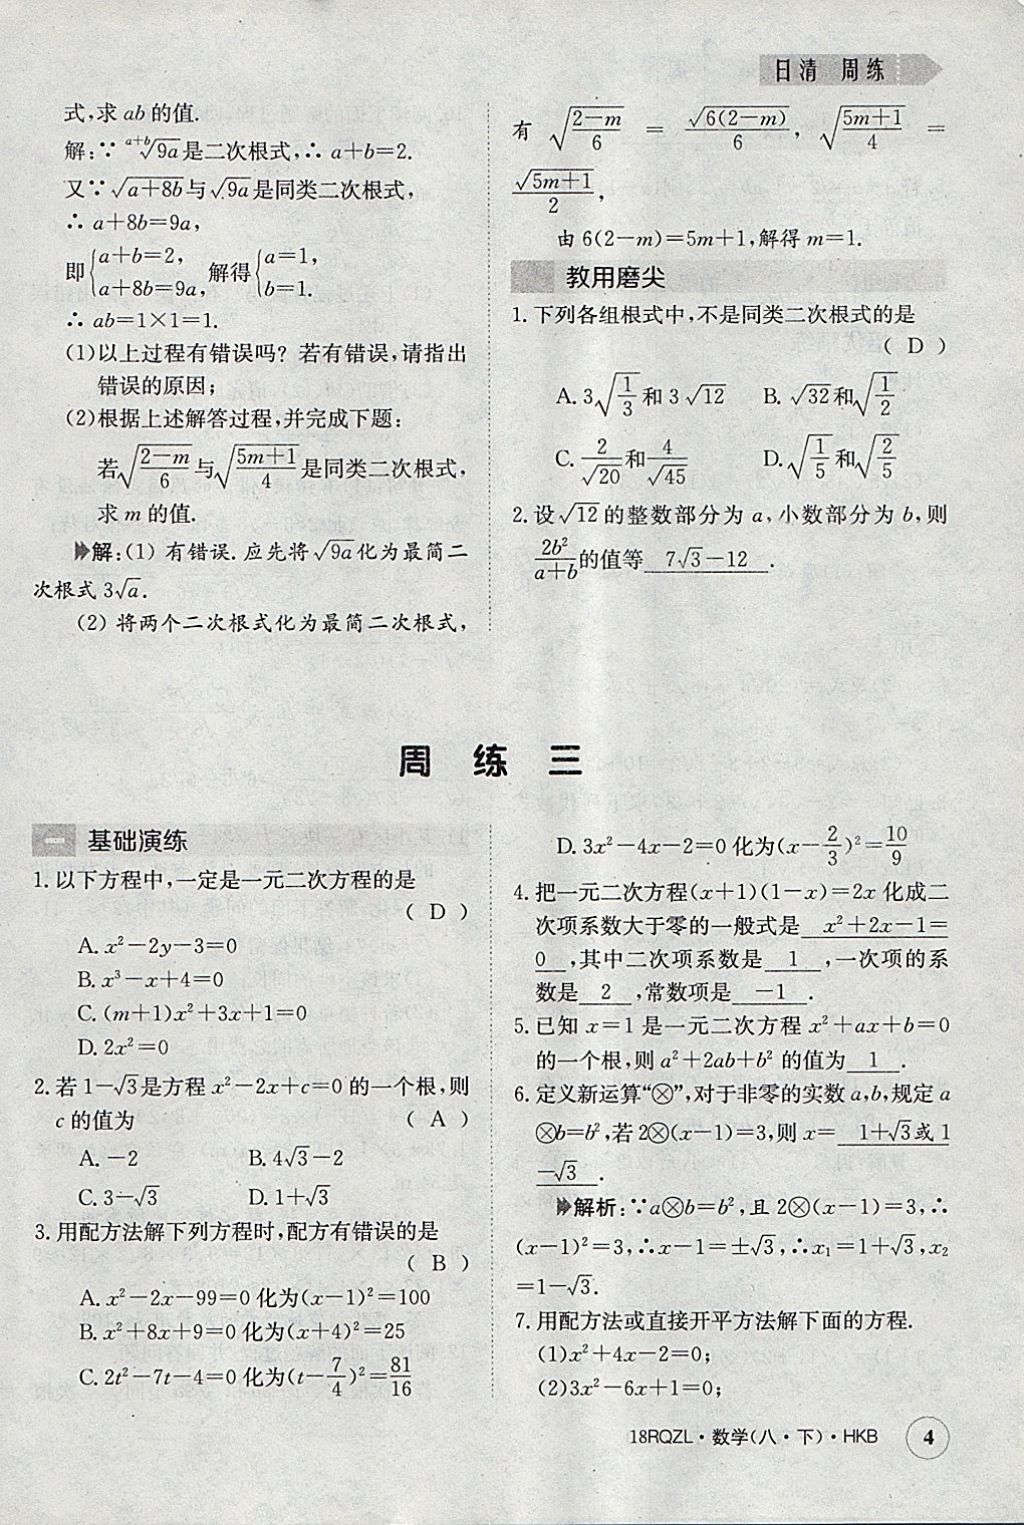 日清 周练
式,求 ab 的值.
解:∵ ᵃ⁺ᵇ√9a是二次根式,∴ a+b=2.
又∵√(a+8b)与√9a是同类二次根式,
∴ a+8b=9a,
即{a+b=2, a+8b=9a, 解得{a=1, b=1.
∴ ab=1×1=1.
(1)以上过程有错误吗? 若有错误,请指出
错误的原因;
(2)根据上述解答过程,并完成下题:
若√((2-m)/6)与√((5m+1)/4)是同类二次根式,
求 m 的值.
解:(1) 有错误. 应先将√9a化为最简二
次根式 3√a.
(2) 将两个二次根式化为最简二次根式,
有 √((2-m)/6) = √(6(2-m))/6, √((5m+1)/4) =
√(5m+1)/2,
由 6(2-m)=5m+1,解得 m=1.
教用磨尖
1. 下列各组根式中,不是同类二次根式的是
( D )
A. 3√(1/3)和 3√12 B. √32和√(1/2)
C. 2/√20和4/√45 D. √(1/5)和√(2/5)
2. 设√12的整数部分为 a,小数部分为 b,则
2b²/(a+b)的值等 7√3-12 .
周 练 三
一 基础演练
1. 以下方程中,一定是一元二次方程的是
( D )
A. x²-2y-3=0
B. x³-x+4=0
C. (m+1)x²+3x+1=0
D. 2x²=0
2. 若 1-√3是方程 x²-2x+c=0 的一个根,则
c 的值为 ( A )
A. -2 B. 4√3-2
C. 3-√3 D. 1+√3
3. 用配方法解下列方程时,配方有错误的是
( B )
A. x²-2x-99=0 化为(x-1)²=100
B. x²+8x+9=0 化为(x+4)²=25
C. 2t²-7t-4=0 化为(t-7/4)²=81/16
D. 3x²-4x-2=0 化为(x-2/3)²=10/9
4. 把一元二次方程(x+1)(1-x)=2x 化成二
次项系数大于零的一般式是 x²+2x-1=
0 ,其中二次项系数是 1 ,一次项的系
数是 2 ,常数项是 -1 .
5. 已知 x=1 是一元二次方程 x²+ax+b=0
的一个根,则 a²+2ab+b² 的值为 1 .
6. 定义新运算“⊗”,对于非零的实数 a,b,规定 a
⊗b=b²,若 2⊗(x-1)=3,则 x= 1+√3或 1
-√3 .
解析:∵a⊗b=b²,且 2⊗(x-1)=3,∴
(x-1)²=3,∴x-1=±√3,∴x₁=1+√3,x₂
=1-√3.
7. 用配方法或直接开平方法解下面的方程.
(1)x²+4x-2=0;
(2)3x²-6x+1=0;
18RQZL·数学(八·下)·HKB 4